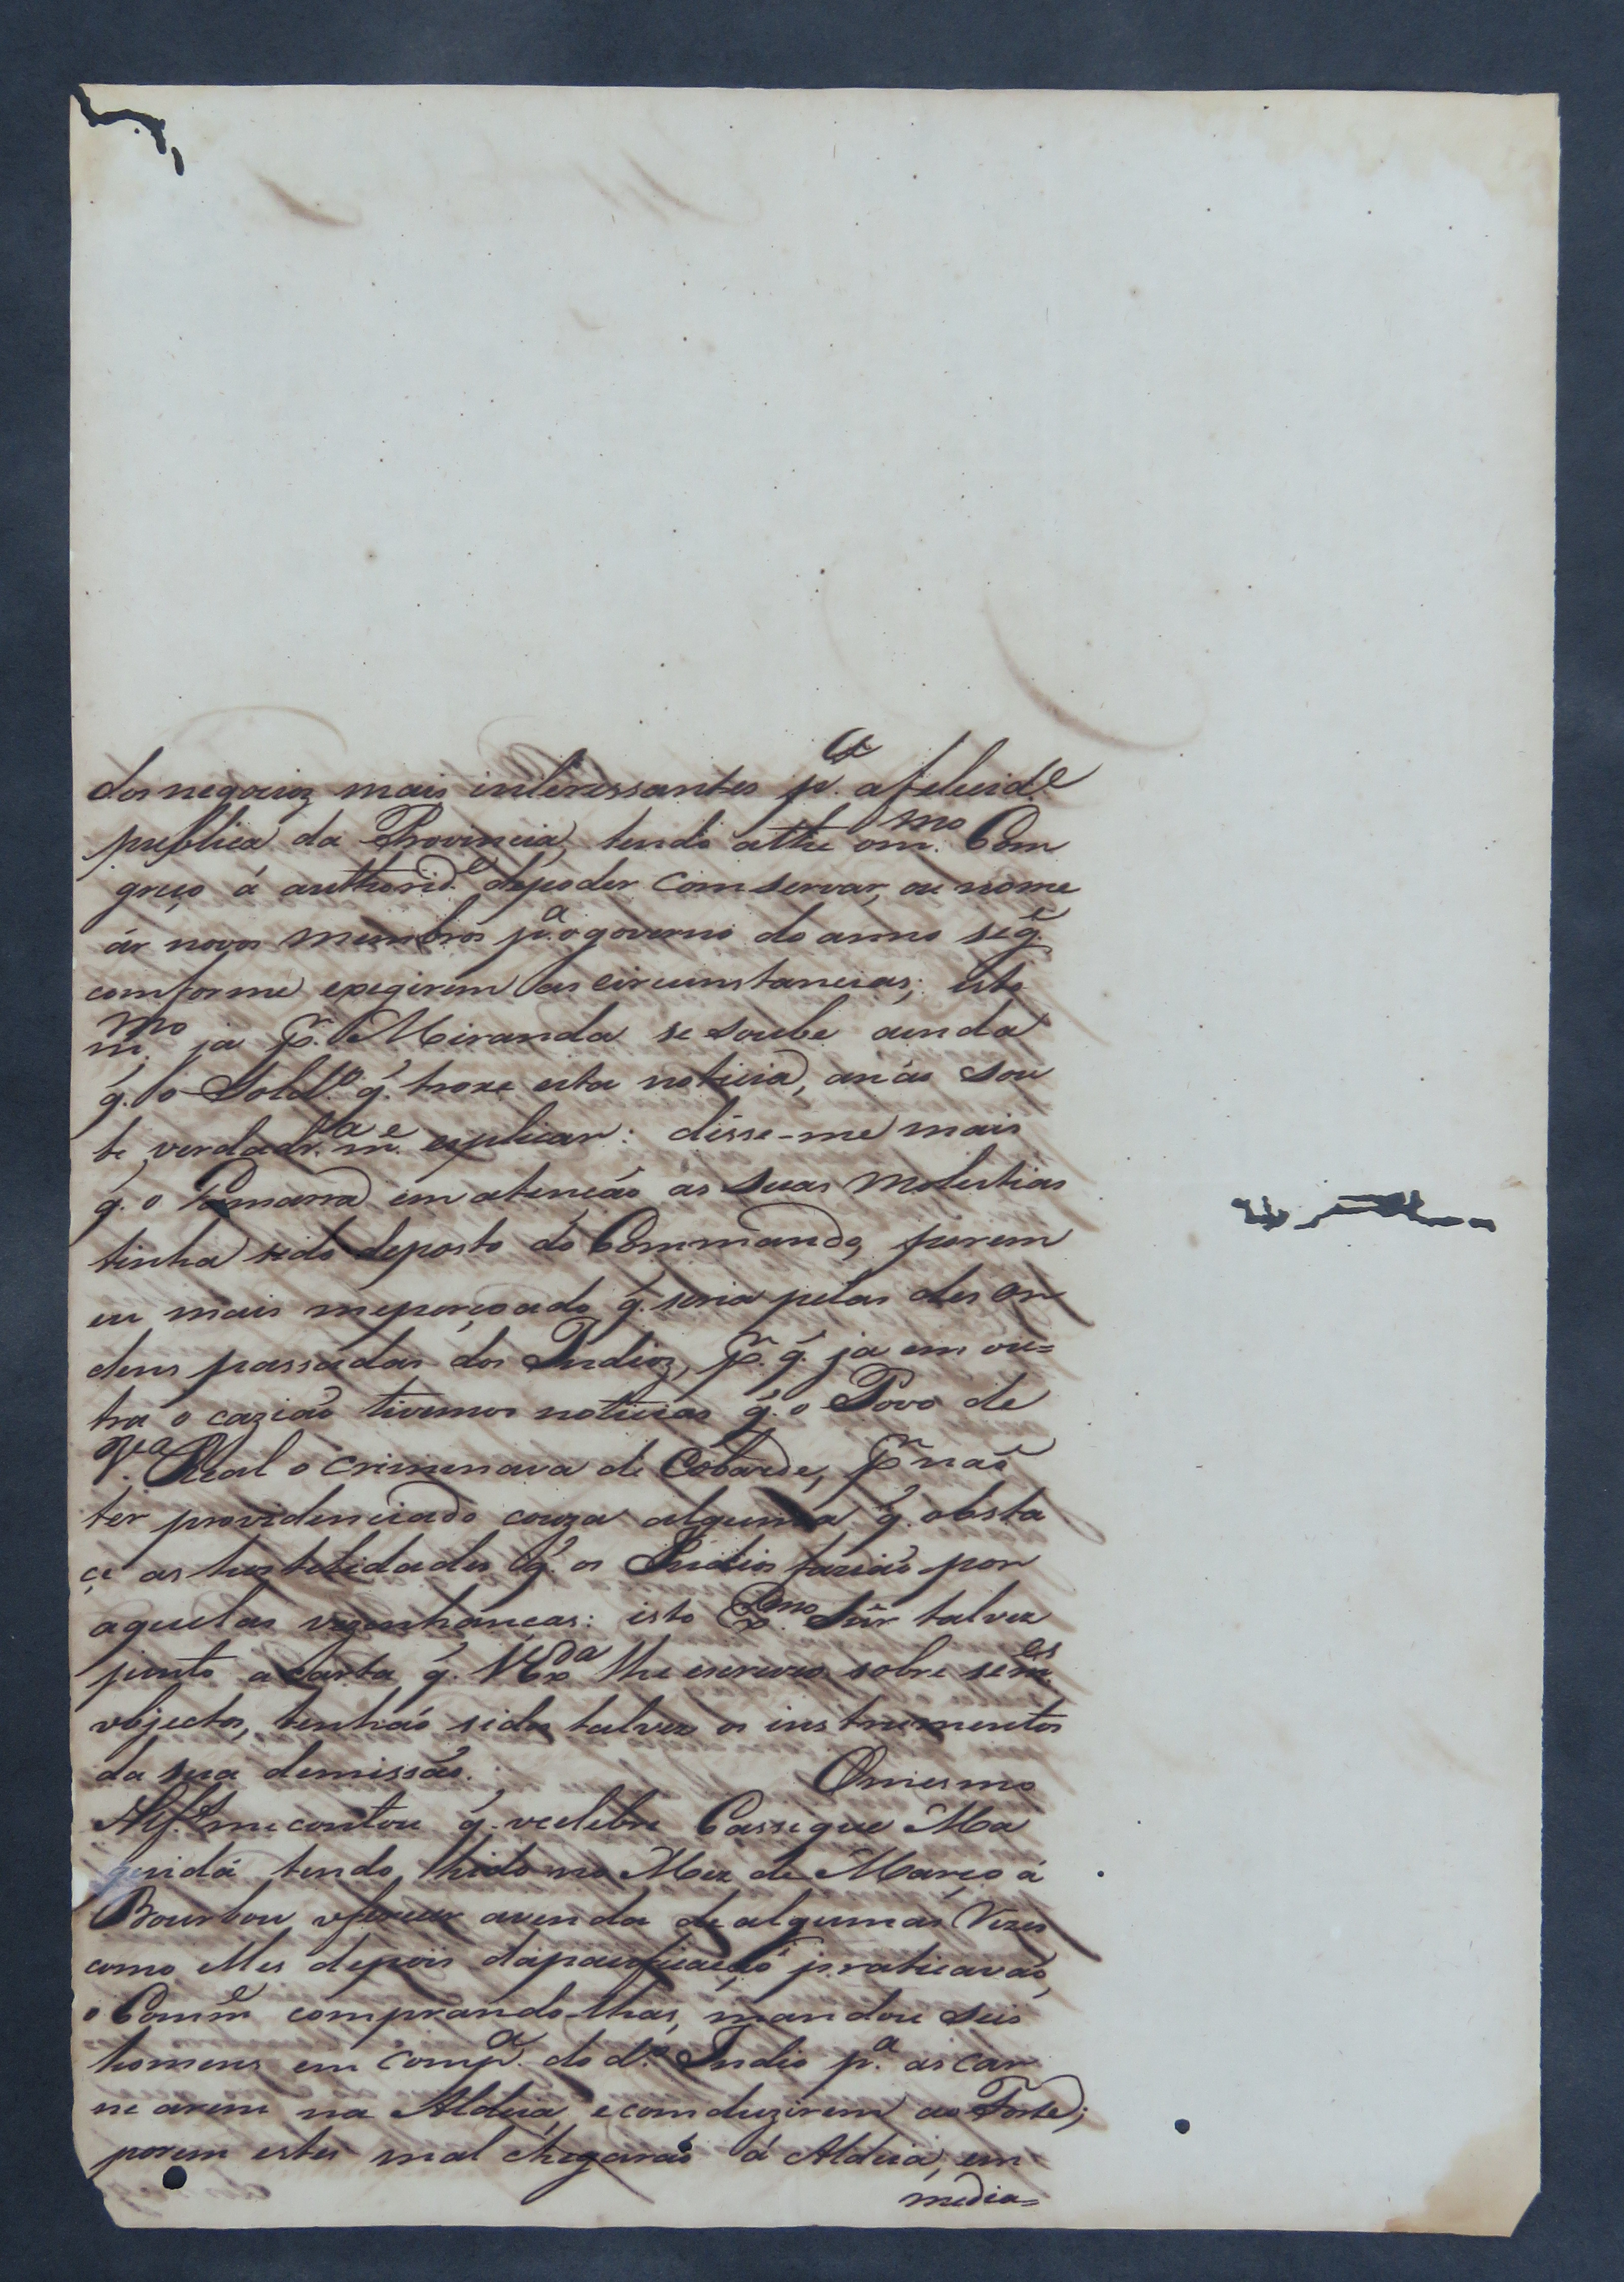 dos negocioz mais interessantes p.ª afelicid.e
publica da Provincia, tendo atthe om.mo Com
greço á authorid.e depoder comservar, ou nome
ár novos membros p.ª ogoverno do anno seg.e
comforme exegirem as circunstancias; isto
m.mo ja p.r Miranda se soube ainda
q. o Sold.o q. troxe esta noticia, anão sou
be verdadr.am.e explicar: disse-me mais
q. o Camarra em atenção as suas molestias
tinha sido deposto do Commando, porem
eu mais meperçoado q. seria pelas des or
dens passadas dos Indioz, p.r q. ja em ou=
tra o cazião tivemos noticias q. o Povo de
V.ª Real o criminava de Cobarde, p.r não
ter providenciado couza alguma q. obsta
çe as hostelidades q. os Indios fazião por
aquelas vezenhancas: isto Ex.mo Snr talvez
junto a carta q. V Ex.da lhe escreveo sobre sem.es
objectos, tenhão sidos talvez os instrumentos
da sua demissão. Omesmo
Alf.s me contou q. ocelebre Cassique Ma
guidá tendo hido no Mez de Março á
Bourbon oferecer avenda de algumas Vezes
como elles depois dapacificação praticavão,
o Comm.e comprando-lhas, mandou seis
homens em comp.ª do d.o Indio p.ª as car
ne arem na Aldeia, e comduzirem ao Forte;
porem estes mal chegarão á Aldeia, em
media=